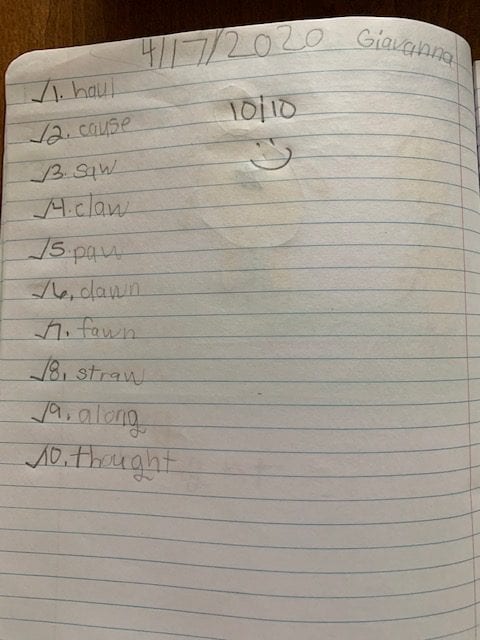 4/17/2020 Giavanna
√1. haul
10/10
√2. cause
√3. saw
√4. claw
√5. paw
√6. dawn
√7. fawn
√8. straw
√9. along
√10. thought